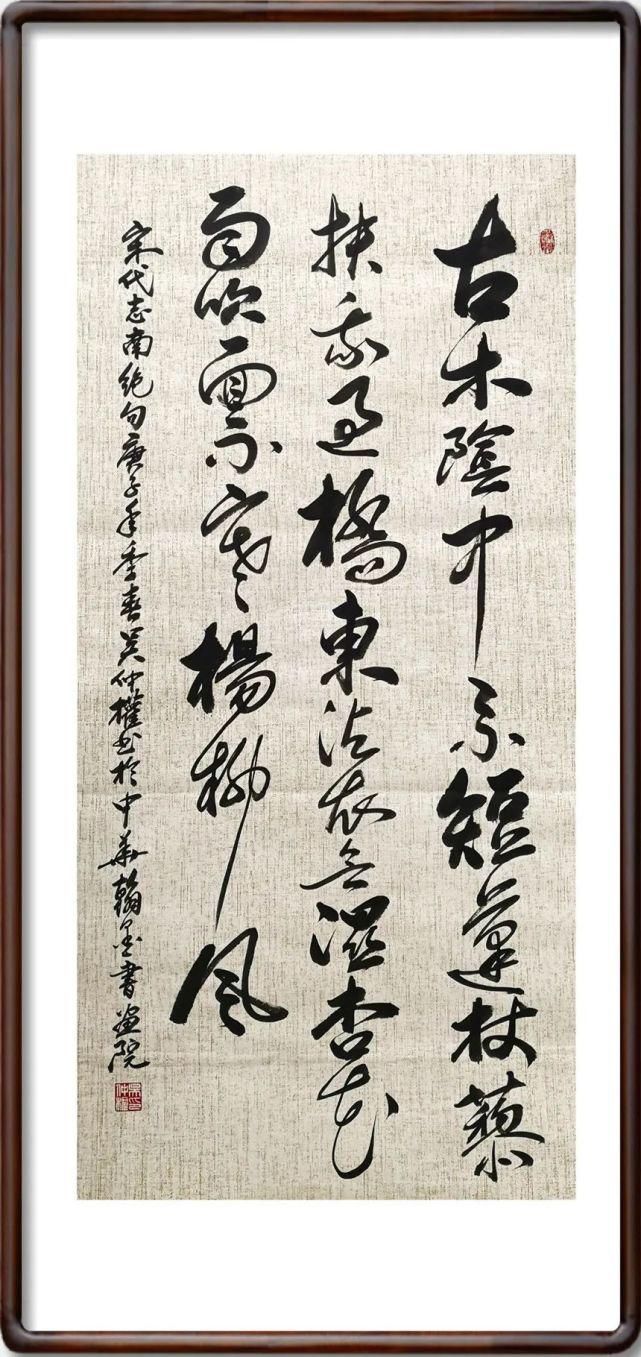 古木陰中系短蓬杖藜
扶我過橋東沾衣欲濕杏花
雨吹面不寒楊柳風
宋代志南絕句庚子年季春吳仲權書於中華翰墨書畫院